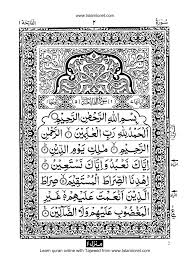 www.Islamicnet.com
الفاتحة ١
٢
سورة
بِسْمِ اللّٰهِ الرَّحْمٰنِ الرَّحِيْمِ
اَلْحَمْدُ لِلّٰهِ رَبِّ الْعٰلَمِيْنَ الرَّحْمٰنِ
الرَّحِيْمِ مٰلِكِ يَوْمِ الدِّيْنِ
اِيَّاكَ نَعْبُدُ وَاِيَّاكَ نَسْتَعِيْنُ
اِهْدِنَا الصِّرَاطَ الْمُسْتَقِيْمَ صِرَاطَ
الَّذِيْنَ اَنْعَمْتَ عَلَيْهِمْ غَيْرِ
الْمَغْضُوْبِ عَلَيْهِمْ وَلَا الضَّآلِّيْنَ
منزل ١
Learn quran online with Tajweed from www.Islamicnet.com